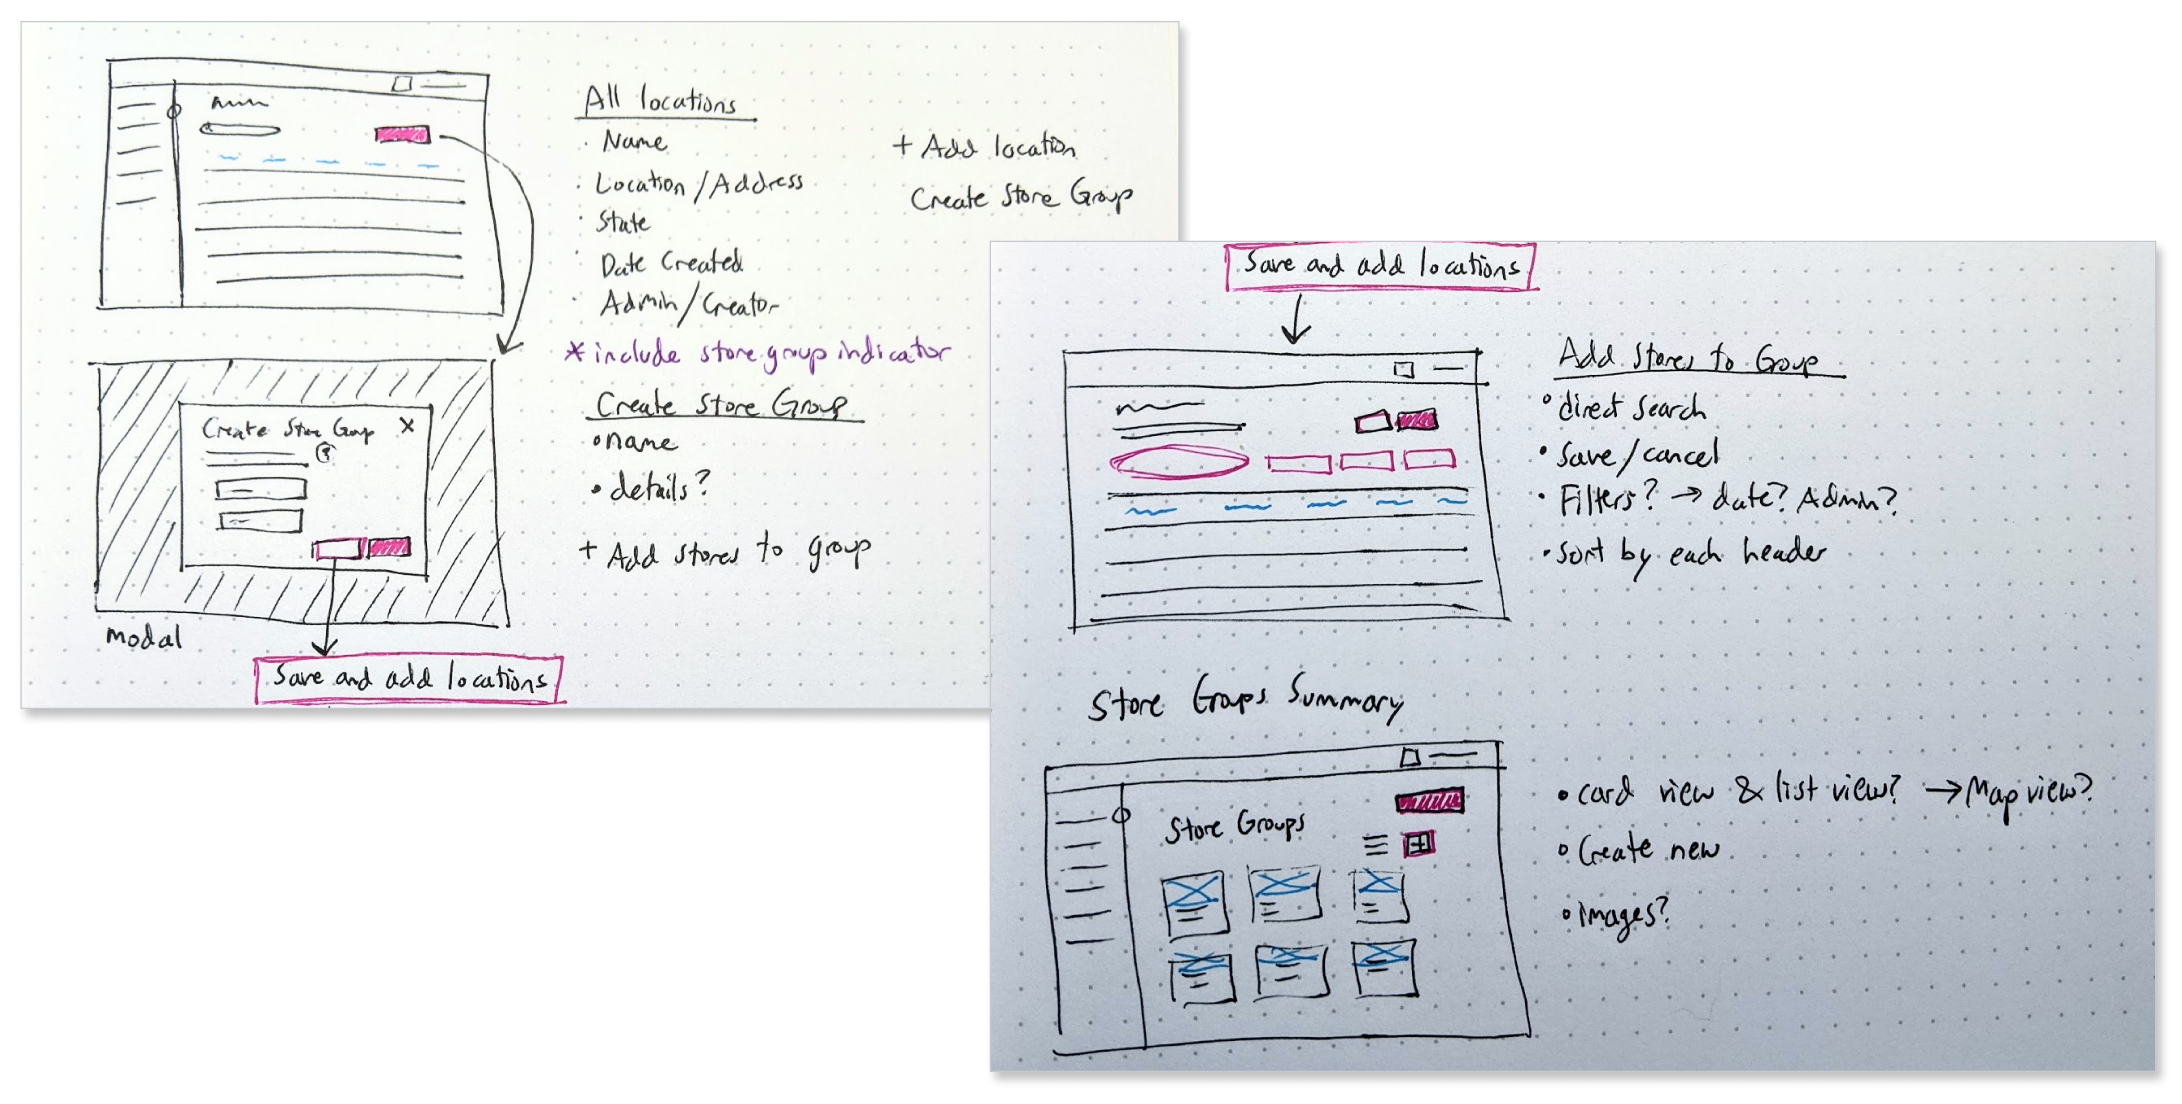 All locations
· Name
· Location/Address
· State
· Date Created
· Admin/Creator
* include store group indicator
+ Add location
Create Store Group
Create Store Group
• name
• details?
+ Add stores to group
Create Store Group X
?
modal
Save and add locations
Save and add locations
Add Stores to Group
• direct search
• Save/cancel
• Filters? → date? Admin?
• Sort by each header
Store Groups Summary
Store Groups
• card view & list view? → Map view?
• Create new
• images?